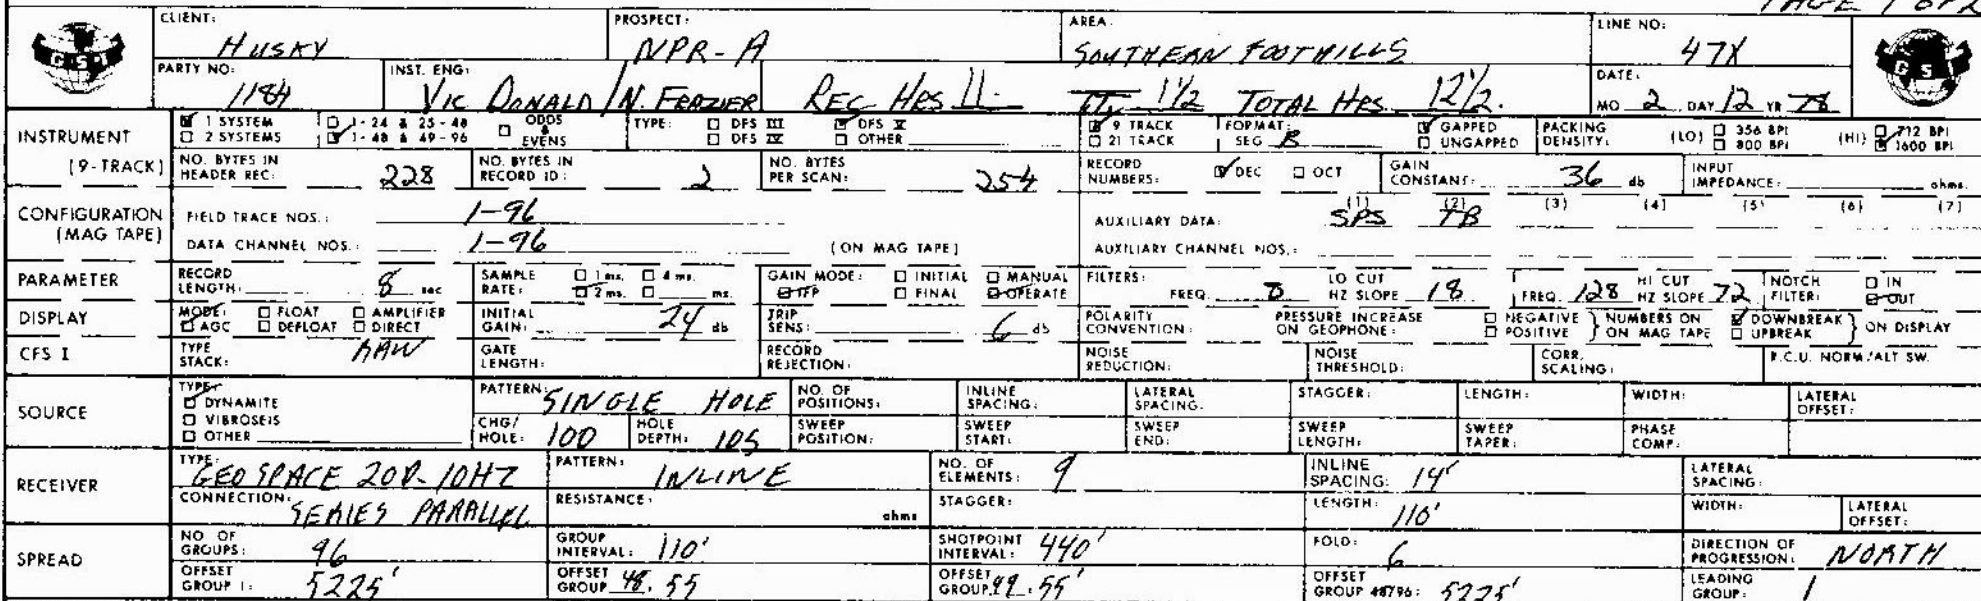 PAGE 1 OF 2
CLIENT: HUSKY PROSPECT: NPR-A AREA: SOUTHERN FOOTHILLS LINE NO: 47X
GSI
PARTY NO: 1184 INST. ENG: VIC DONALD / N. FRAZIER REC HRS 11 1 1/2 TOTAL HRS 12 1/2. DATE: MO 2 DAY 12 YR 78
GSI
INSTRUMENT (9-TRACK) 1 SYSTEM 1-24 & 25-48 ODDS & EVENS TYPE: DFS III DFS V 9 TRACK FORMAT: SEG B GAPPED PACKING DENSITY: (LO) 356 BPI (HI) 712 BPI
2 SYSTEMS 1-48 & 49-96 DFS IV OTHER 21 TRACK UNGAPPED 800 BPI 1600 BPI
NO. BYTES IN HEADER REC: 228 NO. BYTES IN RECORD ID: 2 NO. BYTES PER SCAN: 254 RECORD NUMBERS: DEC OCT GAIN CONSTANT: 36 db INPUT IMPEDANCE: ohms.
CONFIGURATION (MAG TAPE) FIELD TRACE NOS.: 1-96 AUXILIARY DATA: (1) SPS (2) TB (3) (4) (5) (6) (7)
DATA CHANNEL NOS.: 1-96 (ON MAG TAPE) AUXILIARY CHANNEL NOS.:
PARAMETER RECORD LENGTH: 8 sec SAMPLE RATE: 1 ms. 4 ms. 2 ms. ms. GAIN MODE: INITIAL MANUAL IFP FINAL OPERATE FILTERS: FREQ. 8 LO CUT HZ SLOPE 18 FREQ. 128 HI CUT HZ SLOPE 72 NOTCH FILTER: IN OUT
DISPLAY MODE: FLOAT AMPLIFIER AGC DEFLOAT DIRECT INITIAL GAIN: 24 db TRIP SENS: 6 db POLARITY CONVENTION: PRESSURE INCREASE ON GEOPHONE: NEGATIVE POSITIVE NUMBERS ON ON MAG TAPE DOWNBREAK UPBREAK ON DISPLAY
CFS I TYPE STACK: RAW GATE LENGTH: RECORD REJECTION: NOISE REDUCTION: NOISE THRESHOLD: CORR. SCALING: R.C.U. NORM/ALT SW.
SOURCE TYPE: DYNAMITE VIBROSEIS OTHER PATTERN: SINGLE HOLE NO. OF POSITIONS: INLINE SPACING: LATERAL SPACING: STAGGER: LENGTH: WIDTH: LATERAL OFFSET:
CHG/HOLE: 100 HOLE DEPTH: 105 SWEEP POSITION: SWEEP START: SWEEP END: SWEEP LENGTH: SWEEP TAPER: PHASE COMP:
RECEIVER TYPE: GEO SPACE 20D-10HZ PATTERN: INLINE NO. OF ELEMENTS: 9 INLINE SPACING: 14' LATERAL SPACING:
CONNECTION: SERIES PARALLEL RESISTANCE: ohms STAGGER: LENGTH: 110' WIDTH: LATERAL OFFSET:
SPREAD NO OF GROUPS: 96 GROUP INTERVAL: 110' SHOTPOINT INTERVAL: 440' FOLD: 6 DIRECTION OF PROGRESSION: NORTH
OFFSET GROUP 1: 5225' OFFSET GROUP 48: 55 OFFSET GROUP 49: 55' OFFSET GROUP 48/96: 5225' LEADING GROUP: 1